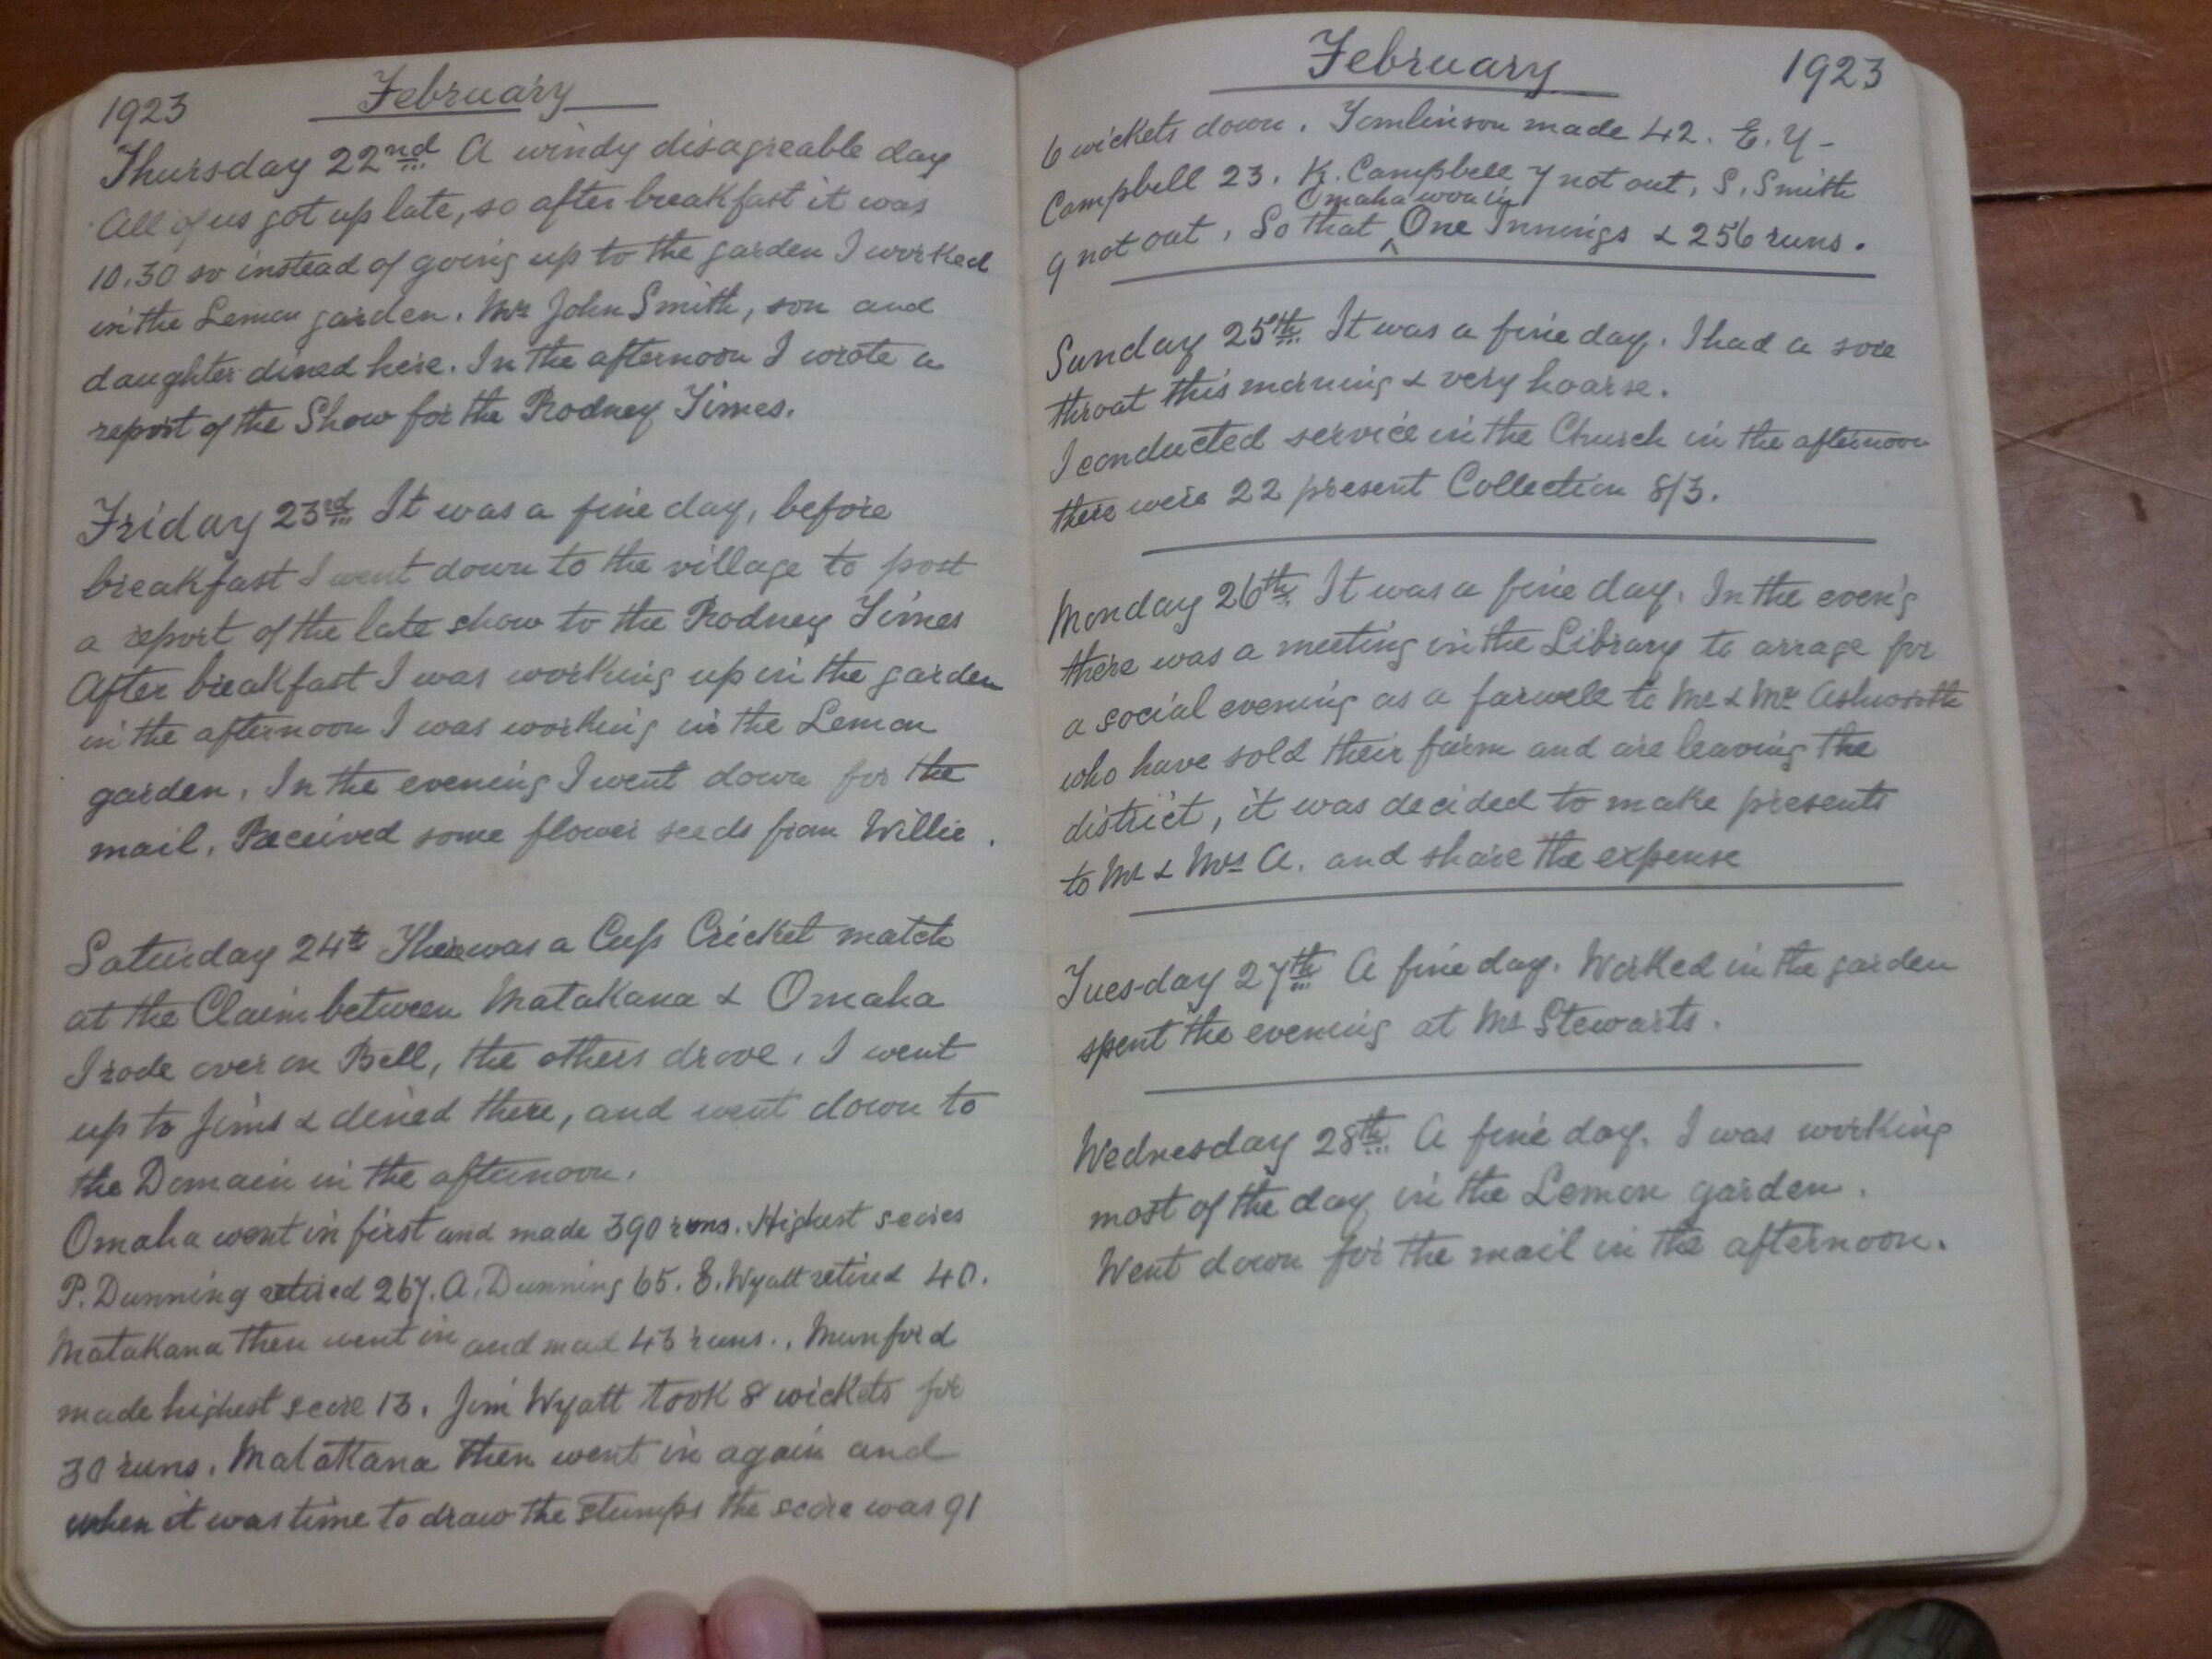 1923 February
Thursday 22nd A windy disagreeable day
All of us got up late, so after breakfast it was
10.30 so instead of going up to the garden I worked
in the Lemon garden. Mr John Smith, son and
daughter dined here. In the afternoon I wrote a
report of the Show for the Rodney Times.
Friday 23rd It was a fine day, before
breakfast I went down to the village to post
a report of the late show to the Rodney Times
After breakfast I was working up in the garden
in the afternoon I was working in the Lemon
garden. In the evening I went down for the
mail. Received some flower seeds from Willie.
Saturday 24th There was a Cup Cricket match
at the Claim between Matakana & Omaha
I rode over on Bell, the others drove. I went
up to Jims & dined there, and went down to
the Domain in the afternoon.
Omaha went in first and made 390 runs. Highest scores
P. Dunning retired 267. A. Dunning 65. E. Wyatt retired 40.
Matakana then went in and mad 43 runs.. Munford
made highest score 13. Jim Wyatt took 8 wickets for
30 runs. Matakana then went in again and
when it was time to draw the stumps the score was 91
February 1923
6 wickets down. Tomlinson made 42. E. Y-
Campbell 23. K. Campbell 7 not out, S. Smith
9 not out. So that ^ Omaha won in One Innings & 256 runs.
Sunday 25th It was a fine day. I had a sore
throat this morning & very hoarse.
I conducted service in the Church in the afternoon
there were 22 present Collection 8/3.
Monday 26th It was a fine day. In the eveng
there was a meeting in the Library to arrage for
a social evening as a farwell to Mr & Mrs Ashworth
who have sold their farm and are leaving the
district, it was decided to make presents
to Mr & Mrs A. and share the expense
Tuesday 27th A fine day. Worked in the garden
spent the evening at Mr Stewarts.
Wednesday 28th A fine day. I was working
most of the day in the Lemon garden.
Went down for the mail in the afternoon.